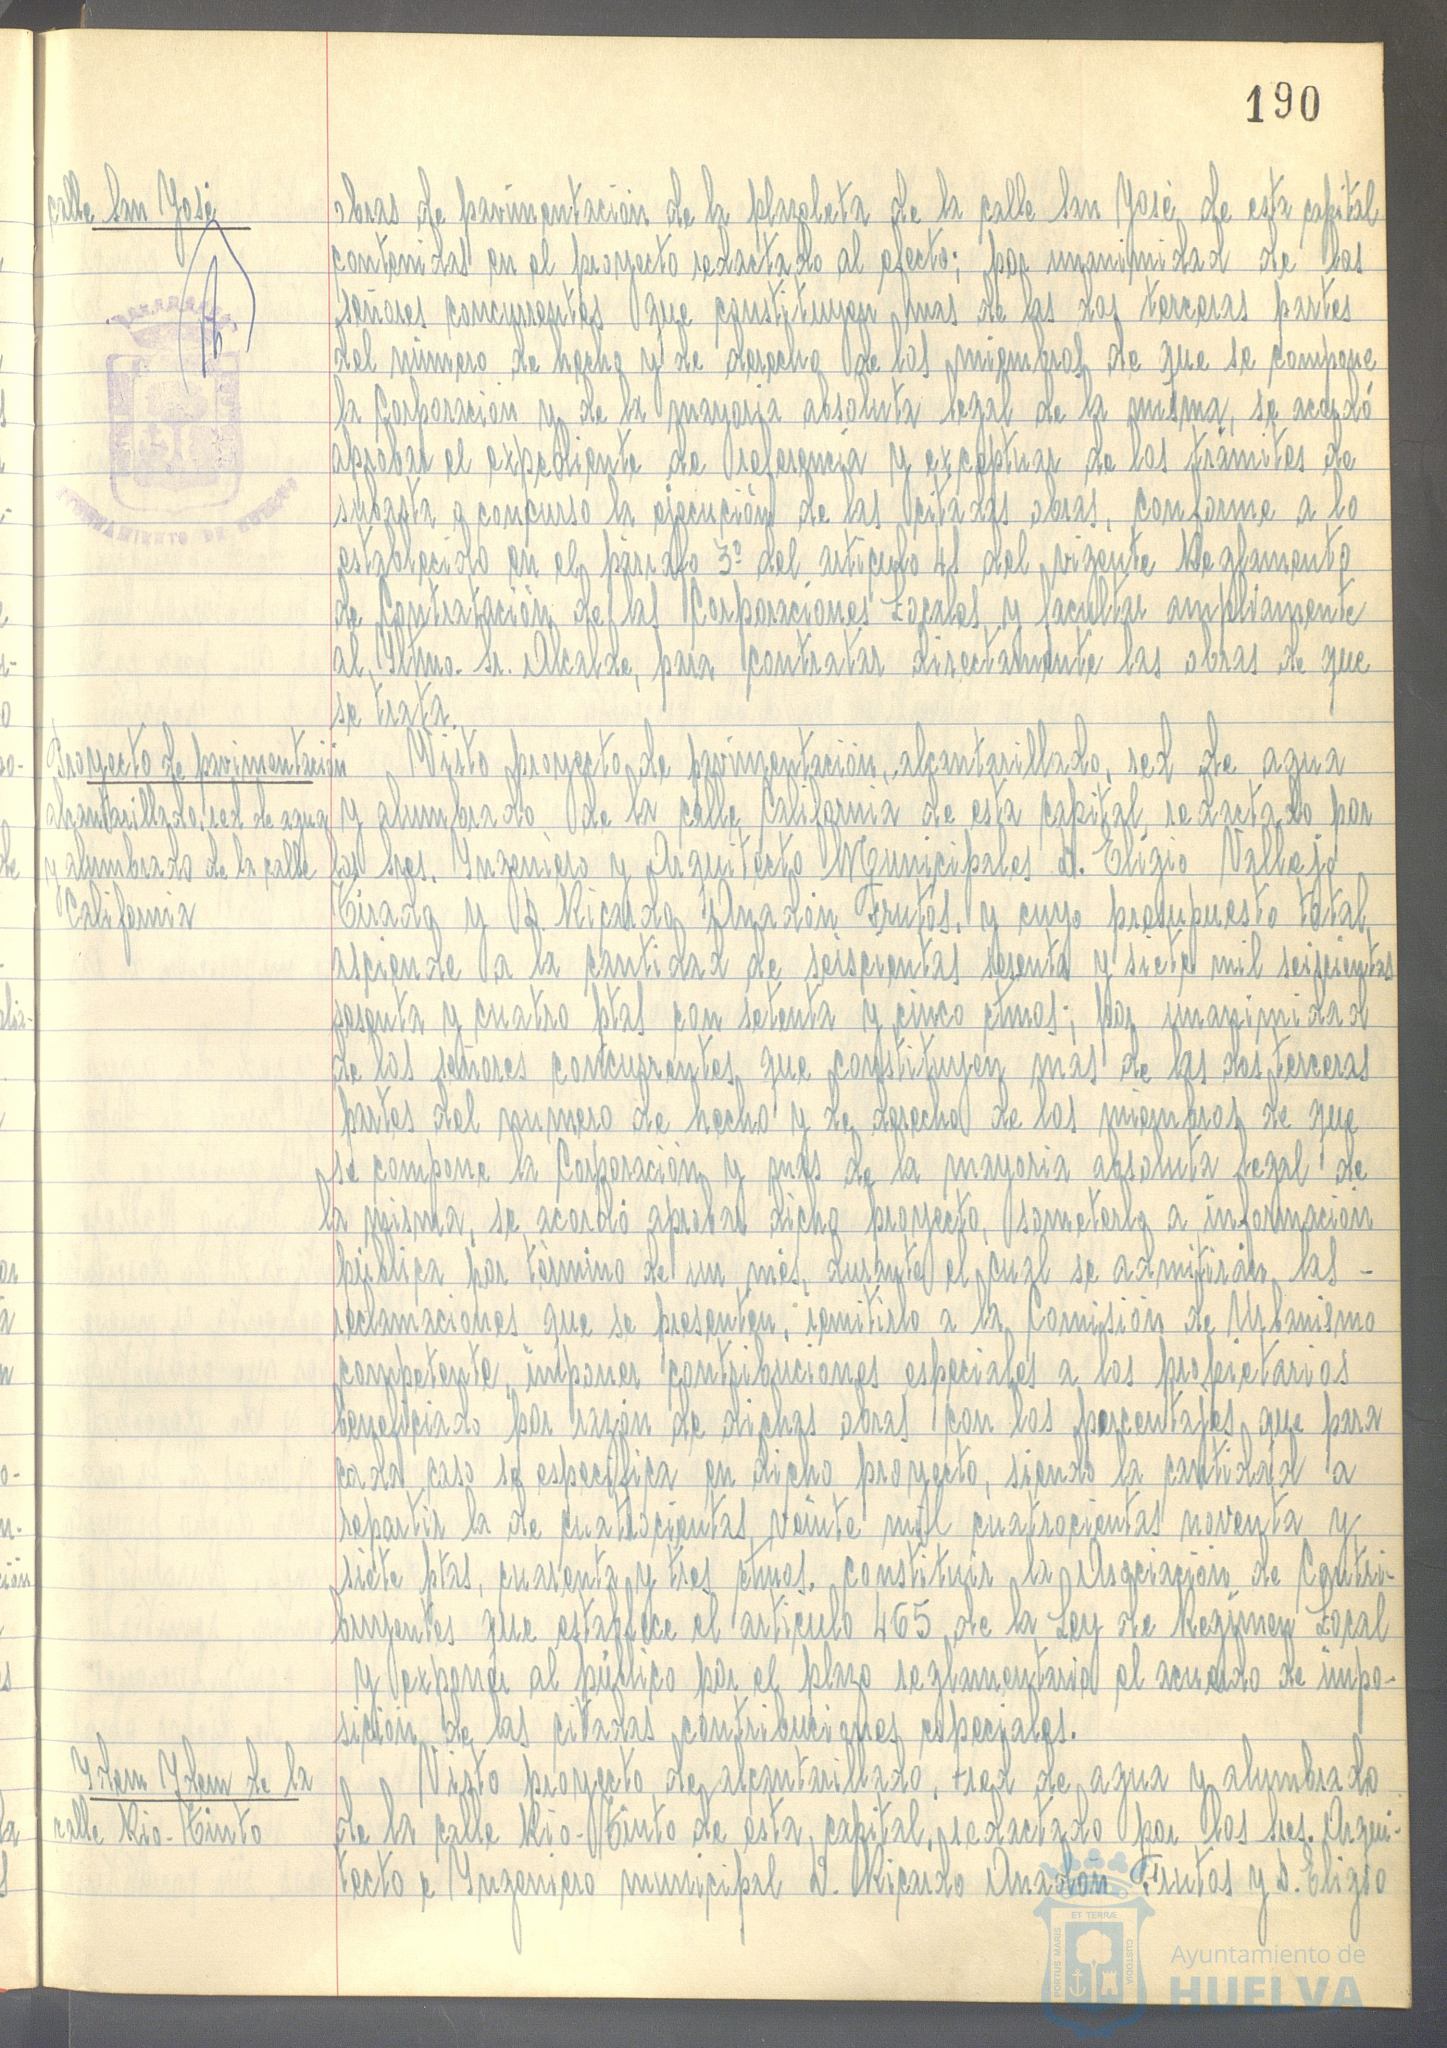 190
calle San José
obras de pavimentación de la plazoleta de la calle San José de esta capital
contenidas en el proyecto redactado al efecto; por unanimidad de los
señores concurrentes que constituyen mas de las dos terceras partes
del número de hecho y de derecho de los miembros de que se compone
la Corporación y de la mayoria absoluta legal de la misma, se acordó
aprobar el expediente de referencia y exceptuar de los trámites de
subasta o concurso la ejecución de las citadas obras, conforme a lo
establecido en el párrafo 3º del artículo 41 del vigente Reglamento
de Contratación de las Corporaciones Locales y facultar ampliamente
al Iltmo. Sr. Alcalde, para contratar directamente las obras de que
se trata.
Proyecto de pavimentación
alcantarillado, red de agua
y alumbrado de la calle
California
Visto proyecto de pavimentación, alcantarillado, red de agua
y alumbrado de la calle California de esta capital, redactado por
los Sres. Ingeniero y Arquitecto Municipales D. Eligio Vallejo
Tirado y D. Ricardo Anadón Frutos, y cuyo presupuesto total
asciende a la cantidad de seiscientas sesenta y siete mil seiscientas
sesenta y cuatro ptas con setenta y cinco ctmos; por unanimidad
de los señores concurrentes que constituyen más de las dos terceras
partes del número de hecho y de derecho de los miembros de que
se compone la Corporación y mas de la mayoria absoluta legal de
la misma, se acordó aprobar dicho proyecto, someterlo a información
pública por término de un mes, durante el cual se admitirán las -
reclamaciones que se presenten, remitirlo a la Comisión de Urbanismo
competente, imponer contribuciones especiales a los propietarios
beneficiado por razón de dichas obras con los porcentajes que para
cada caso se especifica en dicho proyecto, siendo la cantidad a
repartir la de cuatrocientas veinte mil cuatrocientas noventa y
siete ptas, cuarenta y tres ctmos. constituir la Asociación de Contri-
buyentes que establece el artículo 465 de la Ley de Regimen Local
y exponer al público por el plazo reglamentario el acuerdo de impo-
sición de las citadas contribuciones especiales.
Idem Idem de la
calle Rio-Tinto
Visto proyecto de alcantarillado, red de agua y alumbrado
de la calle Rio-Tinto de esta capital, redactado por los Sres. Arqui-
tecto e Ingeniero municipal D. Ricardo Anadón Frutos y D. Eligio
PORTUS MARIS
ET TERRÆ
CUSTODIA
Ayuntamiento de
HUELVA